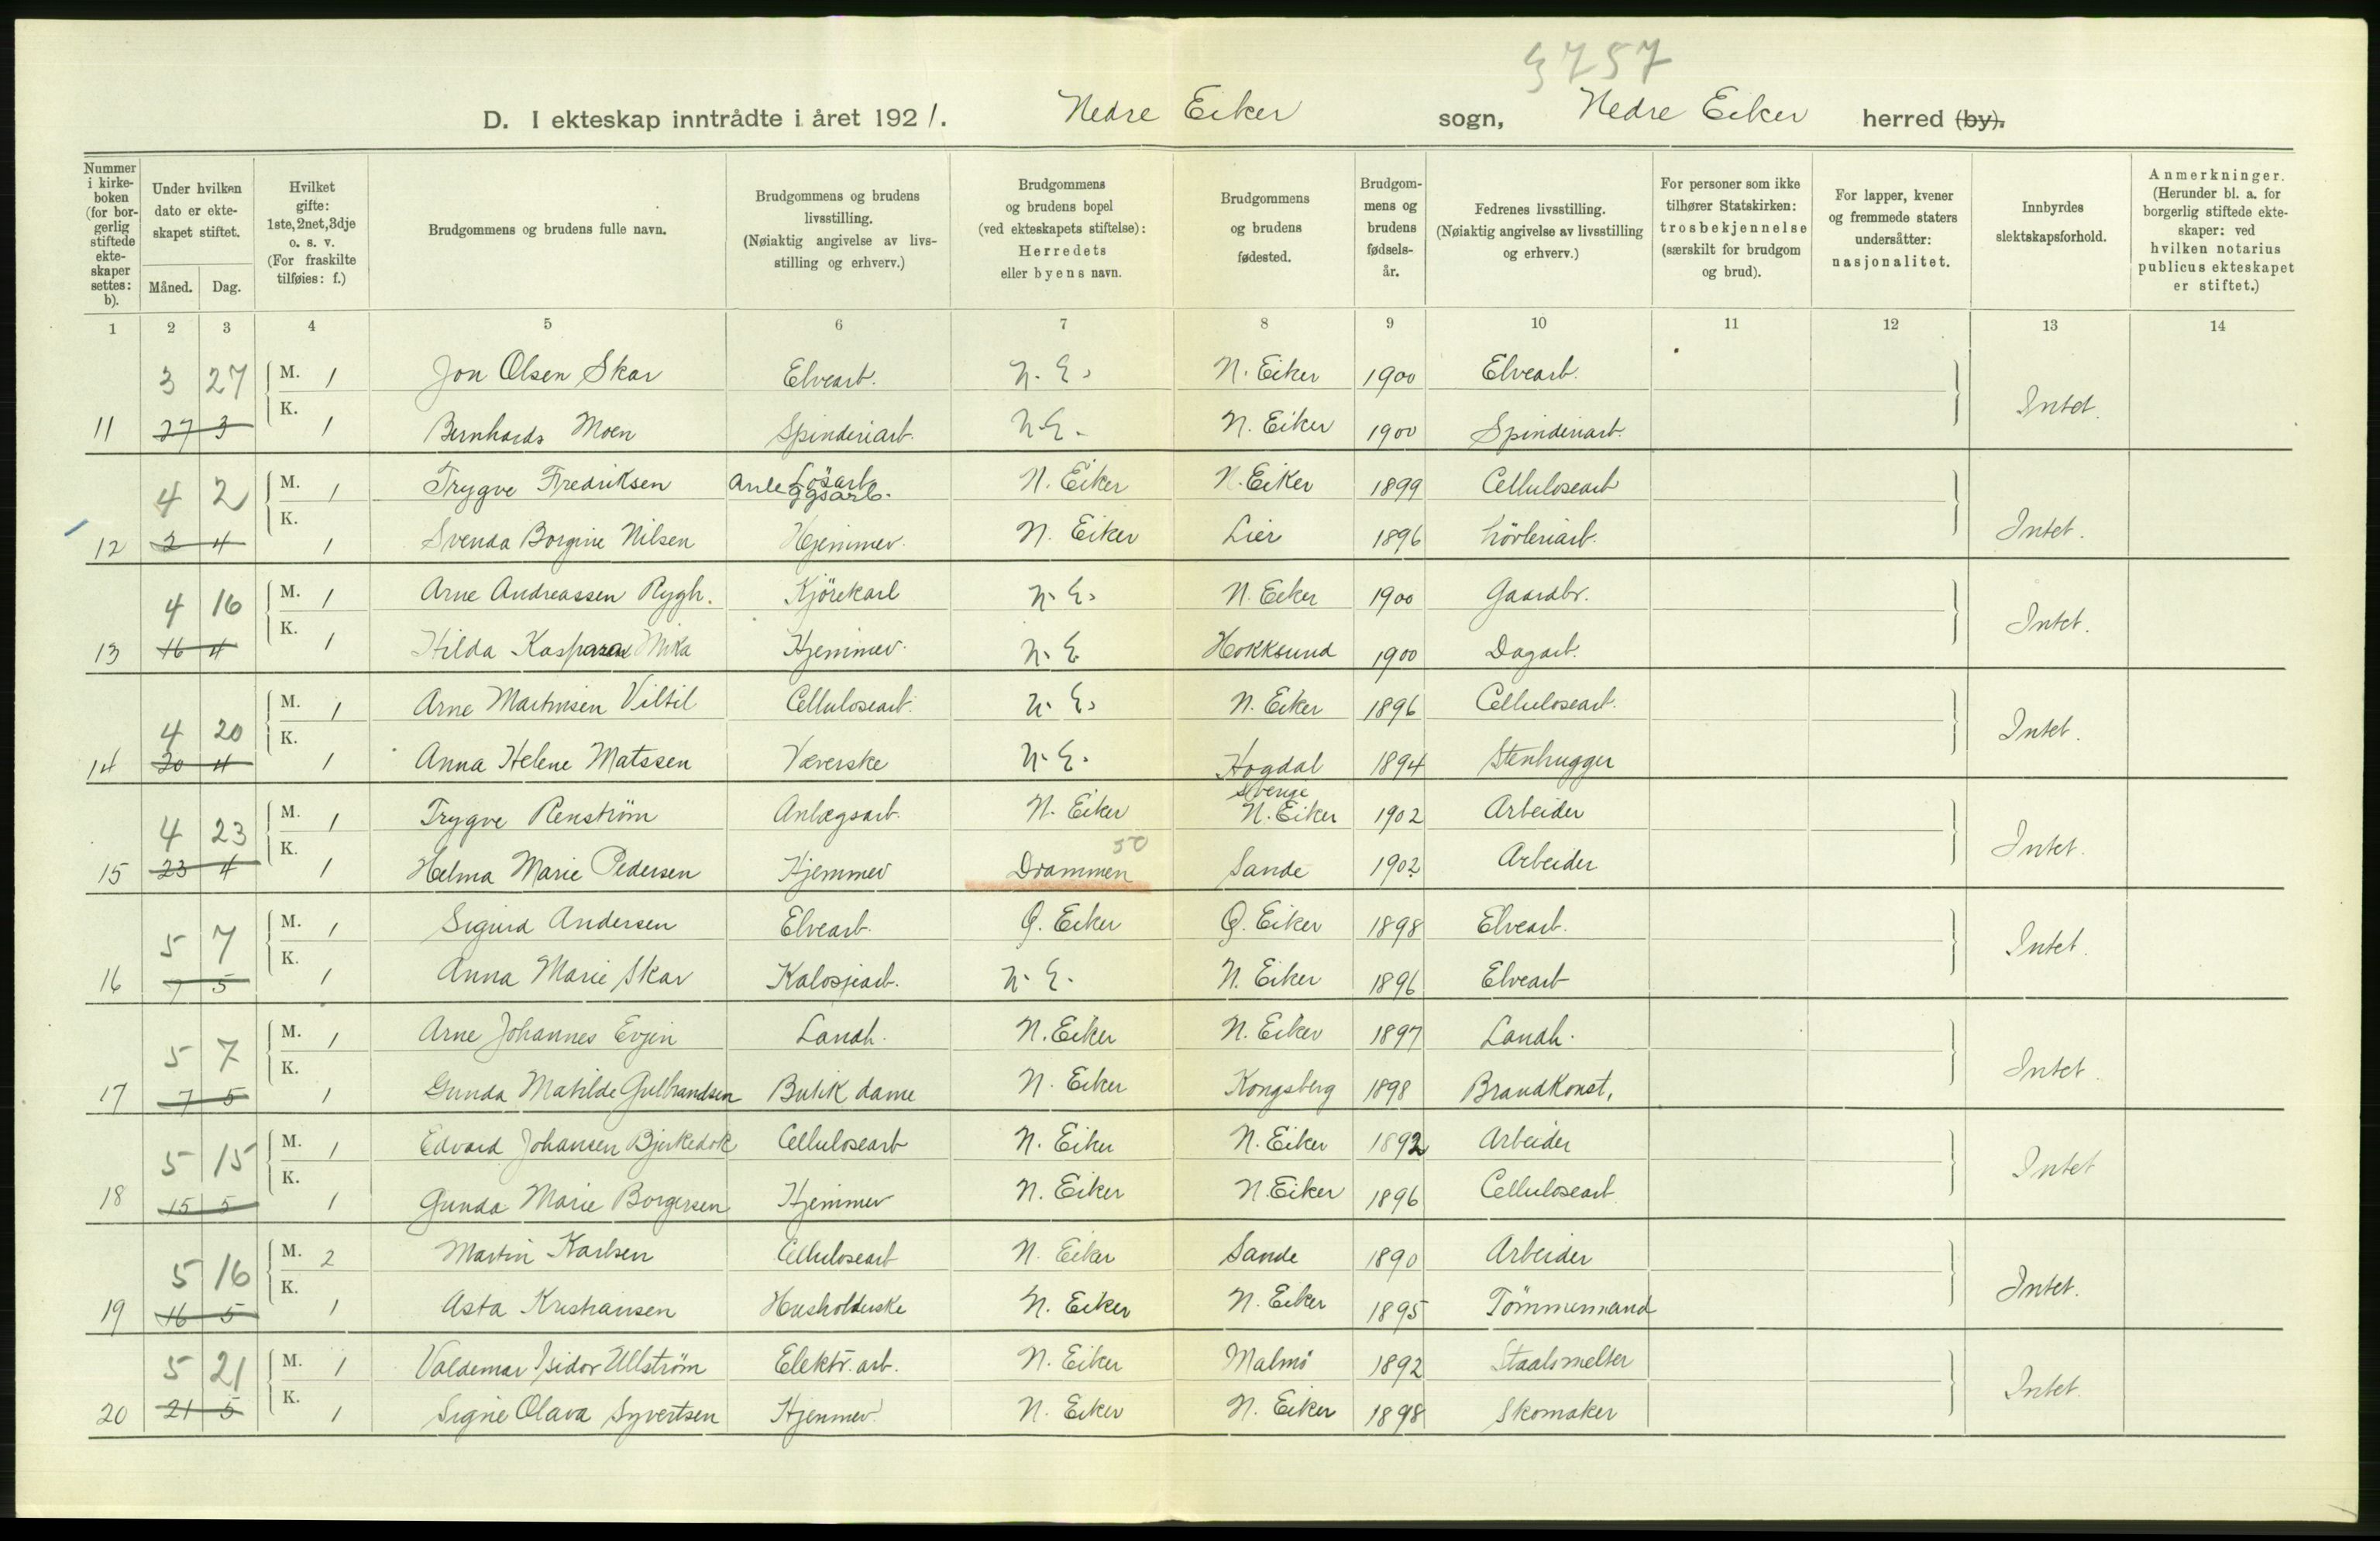 3757
D. I ekteskap inntrådte i året 1921. Nedre Eiker sogn, Nedre Eiker herred (by).
Nummer i kirkeboken (for borgerlig stiftede ekteskaper settes: b).
Under hvilken dato er ekteskapet stiftet.
Måned. Dag.
Hvilket gifte: 1ste, 2net, 3dje o. s. v. (For fraskilte tilføies: f.)
Brudgommens og brudens fulle navn.
Brudgommens og brudens livsstilling. (Nøiaktig angivelse av livsstilling og erhverv.)
Brudgommens og brudens bopel (ved ekteskapets stiftelse): Herredets eller byens navn.
Brudgommens og brudens fødested.
Brudgommens og brudens fødselsår.
Fedrenes livsstilling. (Nøiaktig angivelse av livsstilling og erhverv.)
For personer som ikke tilhører Statskirken: trosbekjennelse (særskilt for brudgom og brud).
For lapper, kvener og fremmede staters undersåtter: nasjonalitet.
Innbyrdes slektskapsforhold.
Anmerkninger. (Herunder bl. a. for borgerlig stiftede ekteskaper: ved hvilken notarius publicus ekteskapet er stiftet.)
1 2 3 4 5 6 7 8 9 10 11 12 13 14
3 27 M. 1 Jon Olsen Skar Elvearb. N. E. N. Eiker 1900 Elvearb.
11 27 3 K. 1 Bernharda Moen Spinderiarb. N. E. N. Eiker 1900 Spinderiarb. Intet.
4 2 M. 1 Trygve Fredriksen Løsarb Anleggsarb. N. Eiker N. Eiker 1899 Cellulosearb
12 2 4 K. 1 Svenda Borgine Nilsen Hjemmev. N. Eiker Lier 1896 Intet.
4 16 M. 1 Arne Andreassen Rygh. Kjörekarl N. E. N. Eiker 1900 Gaardbr.
13 16 4 K. 1 Hilda Kaspara Mika Hjemmev. N. E. Hokksund 1900 Dagarb. Intet.
4 20 M. 1 Arne Martinsen Viltil Cellulosearb. N. E. N. Eiker 1896 Cellulosearb.
14 20 4 K. 1 Anna Helene Matssen Væverske N. E. Hogdal Sverige 1894 Stenhugger Intet.
4 23 M. 1 Trygve Renstrøm Anlægsarb. N. Eiker N. Eiker 1902 Arbeider
15 23 4 K. 1 Helma Marie Pedersen Hjemmev Drammen 50 Sande 1902 Arbeider Intet.
5 7 M. 1 Sigurd Andersen Elvearb. Ø. Eiker Ø. Eiker 1898 Elvearb.
16 7 5 K. 1 Anna Marie Skar Kalosjearb. N. E. N. Eiker 1896 Elvearb Intet.
5 7 M. 1 Arne Johannes Evjen Landh. N. Eiker N. Eiker 1897 Landh.
17 7 5 K. 1 Gunda Matilde Gulbrandsen Butik dame N. Eiker Kongsberg 1898 Brandkonst. Intet.
5 15 M. 1 Edvard Johansen Bjerkedok Cellulosearb N. Eiker N. Eiker 1892 Arbeider
18 15 5 K. 1 Gunda Marie Borgersen Hjemmev N. Eiker N. Eiker 1896 Cellulosearb. Intet
5 16 M. 2 Martin Karlsen Cellulosearb N. Eiker Sande 1890 Arbeider
19 16 5 K. 1 Asta Kristiansen Husholderske N. Eiker N. Eiker 1895 Tömmermand Intet.
5 21 M. 1 Valdemar Isidor Ullström Elektr. arb. N. Eiker Malmö 1892 Staalsmelter
20 21 5 K. 1 Signe Olava Syvertsen Hjemmev. N. Eiker N. Eiker 1898 Skomaker Intet.